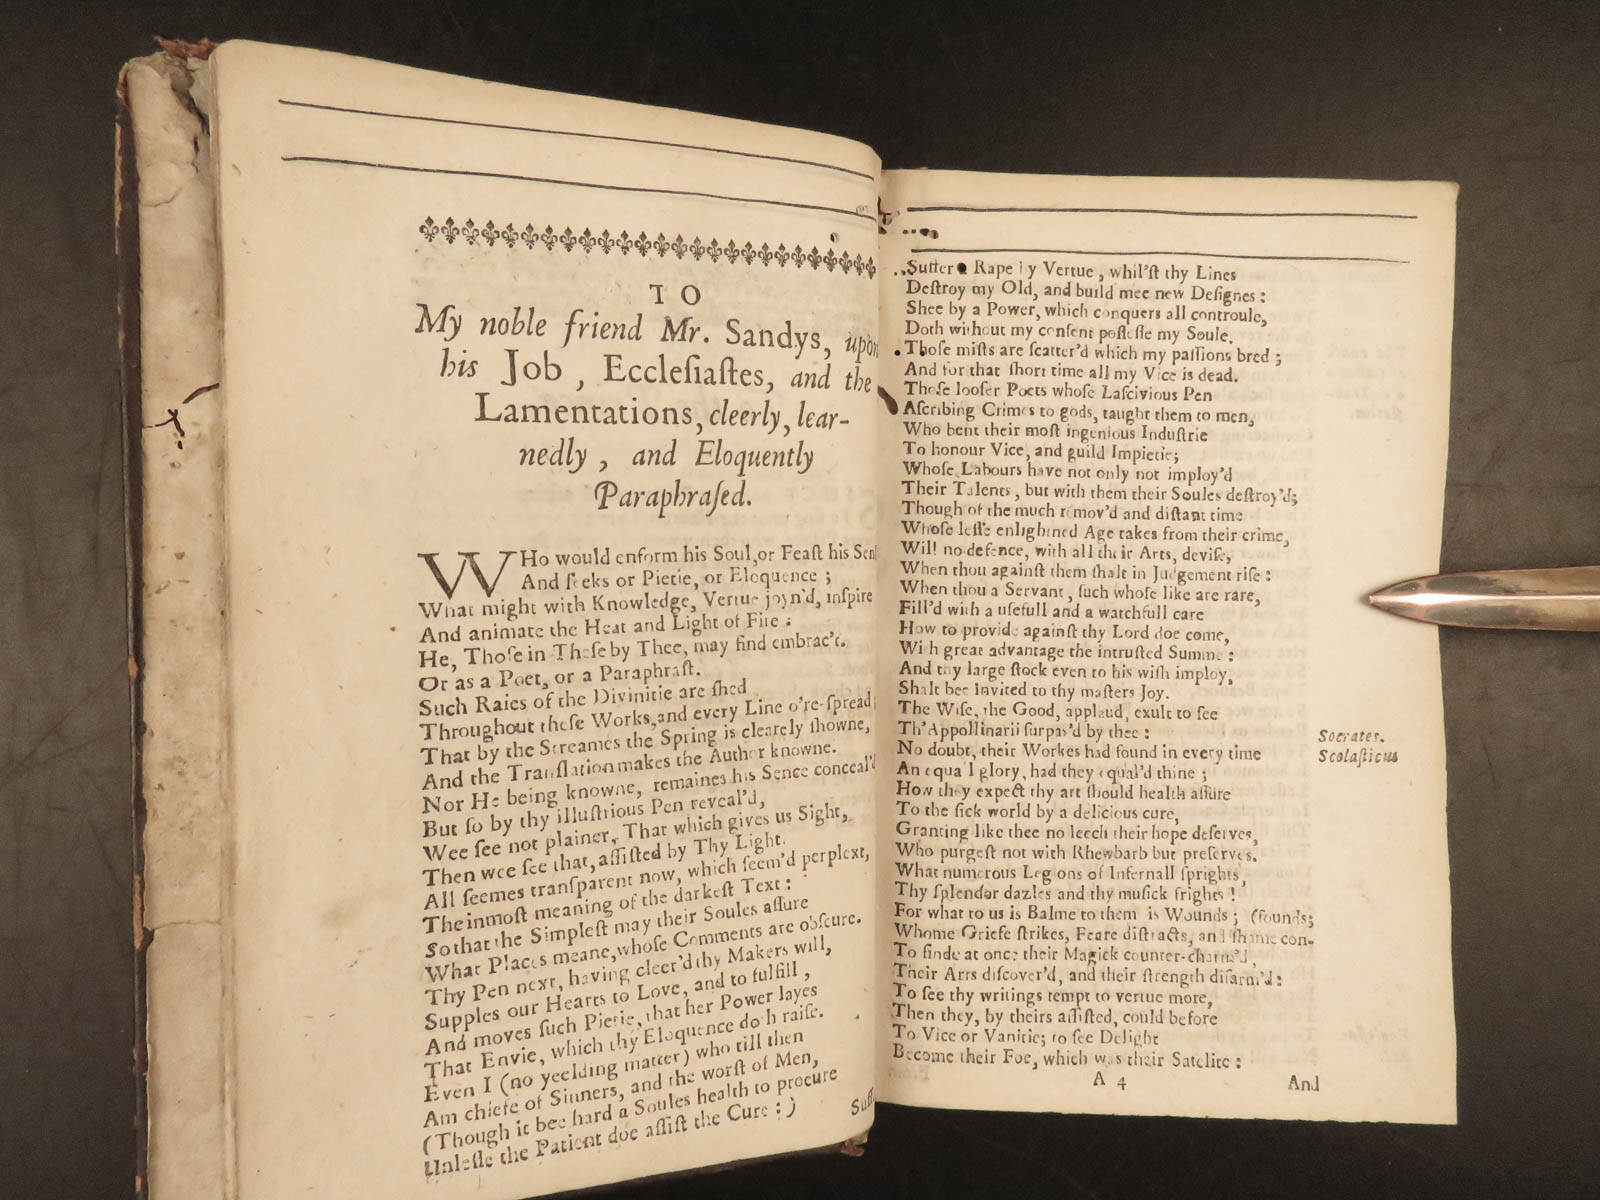 TO
My noble friend Mr. Sandys, upon
his Job, Ecclesiastes, and the
Lamentations, cleerly, lear-
nedly, and Eloquently
Paraphrased.
WHo would enform his Soul, or Feast his
And seeks or Pietie, or Eloquence;
What might with Knowledge, Vertue joyn'd, inspire
And animate the Heat and Light of Fire:
He, Those in These by Thee, may find embrac't.
Or as a Poet, or a Paraphrast.
Such Raies of the Divinitie are shed
Throughout these Works, and every Line o're-spread;
That by the Streames the Spring is clearely showne,
And the Translation makes the Author knowne.
Nor He being knowne, remaines his Sence conceal'd
But so by thy illustrious Pen reveal'd,
Wee see not plainer, That which gives us Sight,
Then wee see that, assisted by Thy Light.
All seemes transparent now, which seem'd perplext,
The inmost meaning of the darkest Text:
So that the Simplest may their Soules assure
What Places meane, whose Comments are obscure.
Thy Pen next, having cleer'd thy Makers will,
Supples our Hearts to Love, and to fulfill,
And moves such Pietie, that her Power layes
That Envie, which thy Eloquence doth raise.
Even I (no yeelding matter) who till then
Am chiefe of Sinners, and the worst of Men,
(Though it bee hard a Soules health to procure
Unlesse the Patient doe assist the Cure:)
Suffer Rape by Vertue, whil'st thy Lines
Destroy my Old, and build mee new Designes:
Shee by a Power, which conquers all controule,
Doth without my consent possesse my Soule.
Those mists are scatter'd which my passions bred;
And for that short time all my Vice is dead.
Those looser Poets whose Lascivious Pen
Ascribing Crimes to gods, taught them to men,
Who bent their most ingenious Industrie
To honour Vice, and guild Impietie;
Whose Labours have not only not imploy'd
Their Talents, but with them their Soules destroy'd;
Though of the much remov'd and distant time
Whose lesse enlightned Age takes from their crime,
Will no defence, with all their Arts, devise,
When thou against them shalt in Judgement rise:
When thou a Servant, such whose like are rare,
Fill'd with a usefull and a watchfull care
How to provide against thy Lord doe come,
With great advantage the intrusted Summe:
And thy large stock even to his wish imploy,
Shalt bee Invited to thy masters Joy.
The Wise, the Good, applaud, exult to see
Th'Appollinarii surpas'd by thee:
Socrates.
Scolasticus
No doubt, their Workes had found in every time
An equal glory, had they equal'd thine;
How they expect thy art should health assure
To the sick world by a delicious cure,
Granting like thee no leech their hope deserves,
Who purgest not with Rhewbarb but preserves.
What numerous Legions of Infernall sprights,
Thy splendor dazles and thy musick frights!
For what to us is Balme to them is Wounds; (founds;
Whome Griefe strikes, Feare distracts, and shame con-
To finde at once their Magick counter-charm'd,
Their Arts discover'd, and their strength disarm'd:
To see thy writings tempt to vertue more,
Then they, by theirs assisted, could before
To Vice or Vanitie; to see Delight
Become their Foe, which was their Satelite:
A 4
And